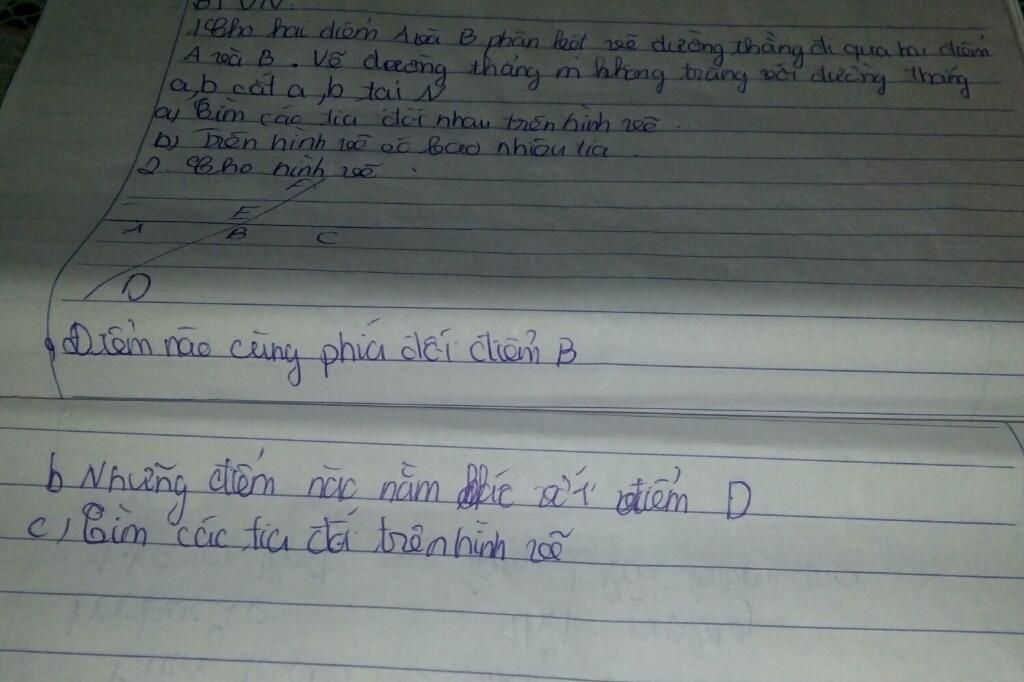 BTVN:
1 Cho hai điểm A và B phân biệt vẽ đường thẳng đi qua hai điểm
A và B. Vẽ đương thẳng m không trùng với đường thẳng
a,b cắt a,b tại N
a) Tìm các tia đối nhau trên hình vẽ.
b) Trên hình vẽ có bao nhiêu tia
2. Cho hình vẽ.
E
A B C
D
a Điểm nào cùng phía đối điểm B
b Những điểm nào nằm với điểm D
c) Tìm các tia đối trên hình vẽ